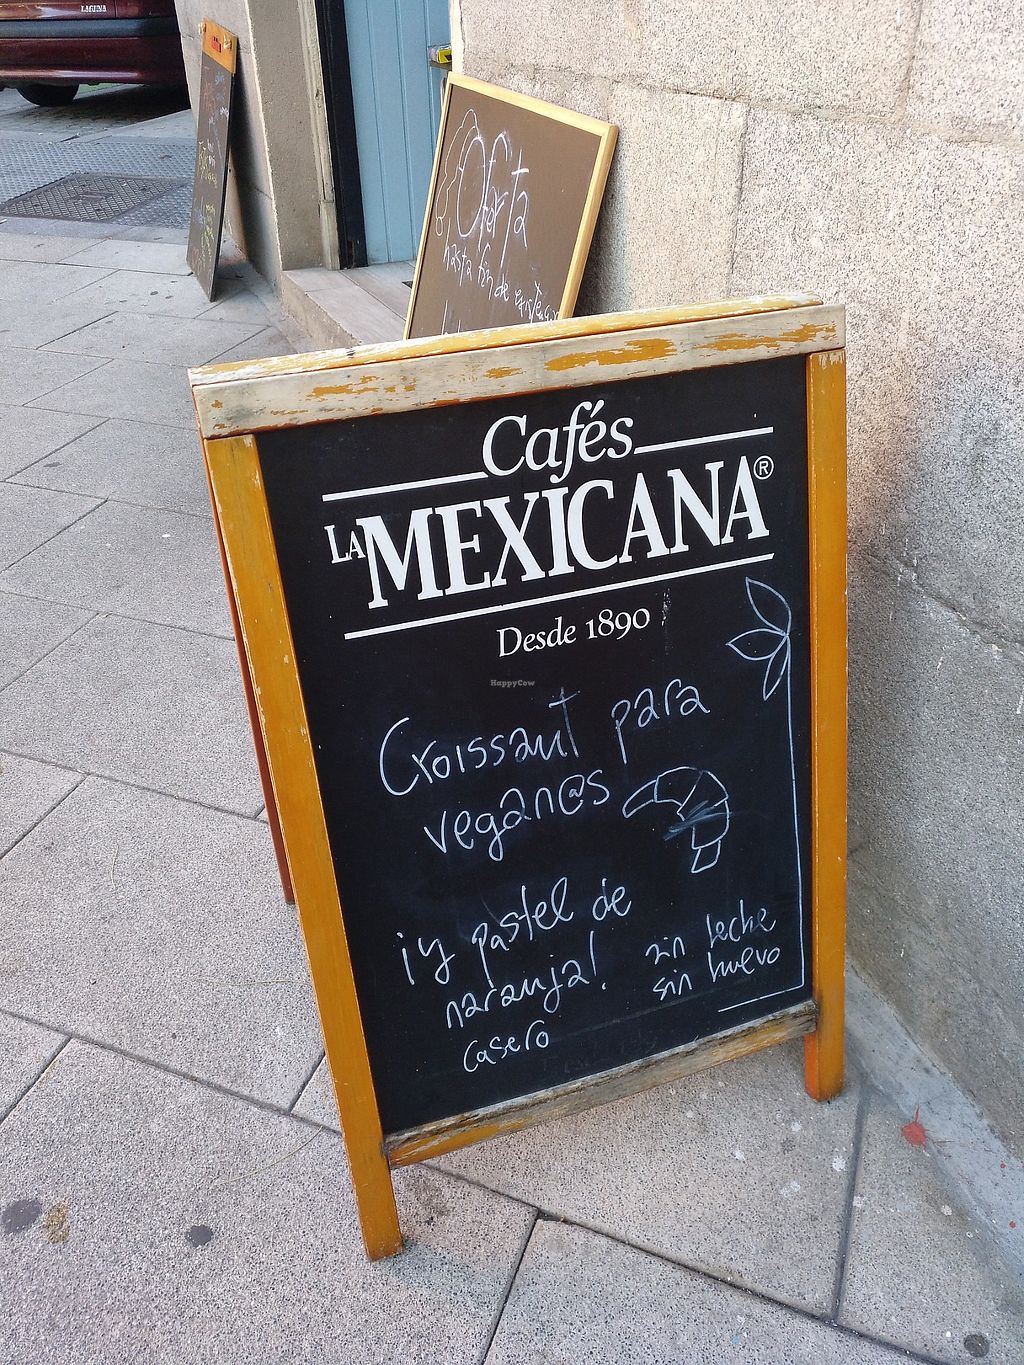 LAGUNA
Oferta
hasta fin de existencias
Cafés
LA MEXICANA®
Desde 1890
HappyCow
Croissant para
vegan@s
¡y pastel de
naranja!
casero
sin leche
sin huevo